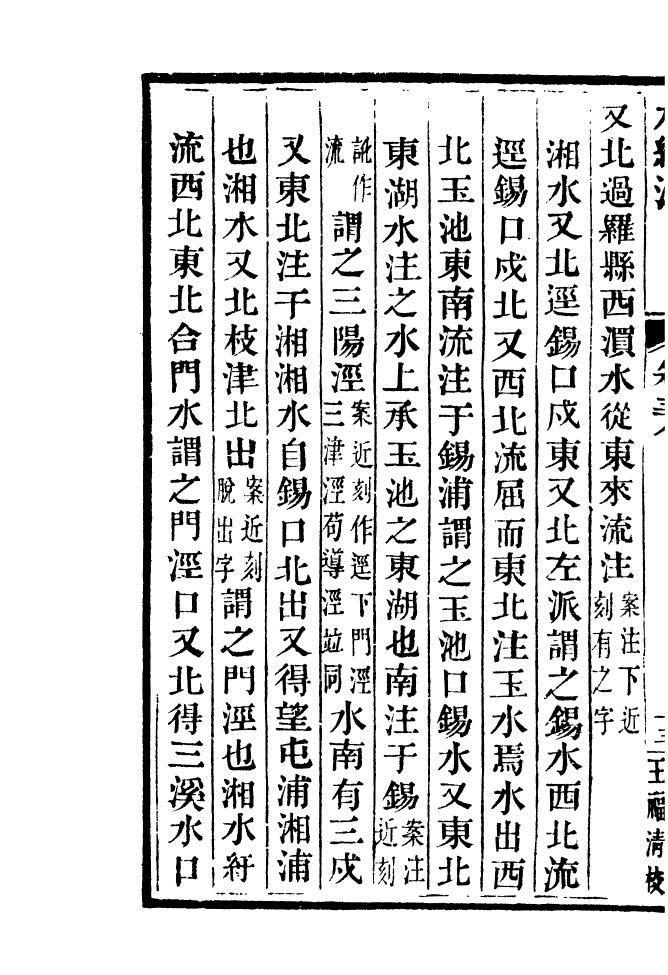 又北過羅縣西湨水從東來流注案注下近刻有之字
湘水又北逕錫口戍東又北左派謂之錫水西北流
逕錫口戍北又西北流屈而東北注玉水焉水出西
北玉池東南流注于錫浦謂之玉池口錫水又東北
東湖水注之水上承玉池之東湖也南注于錫案注近刻
訛作流謂之三陽涇案近刻作逕下門涇三津涇苟導涇竝同水南有三戍
又東北注于湘湘水自錫口北出又得望屯浦湘浦
也湘水又北枝津北出案近刻脫出字謂之門涇也湘水紆
流西北東北合門水謂之門涇口又北得三溪水口
王福清校